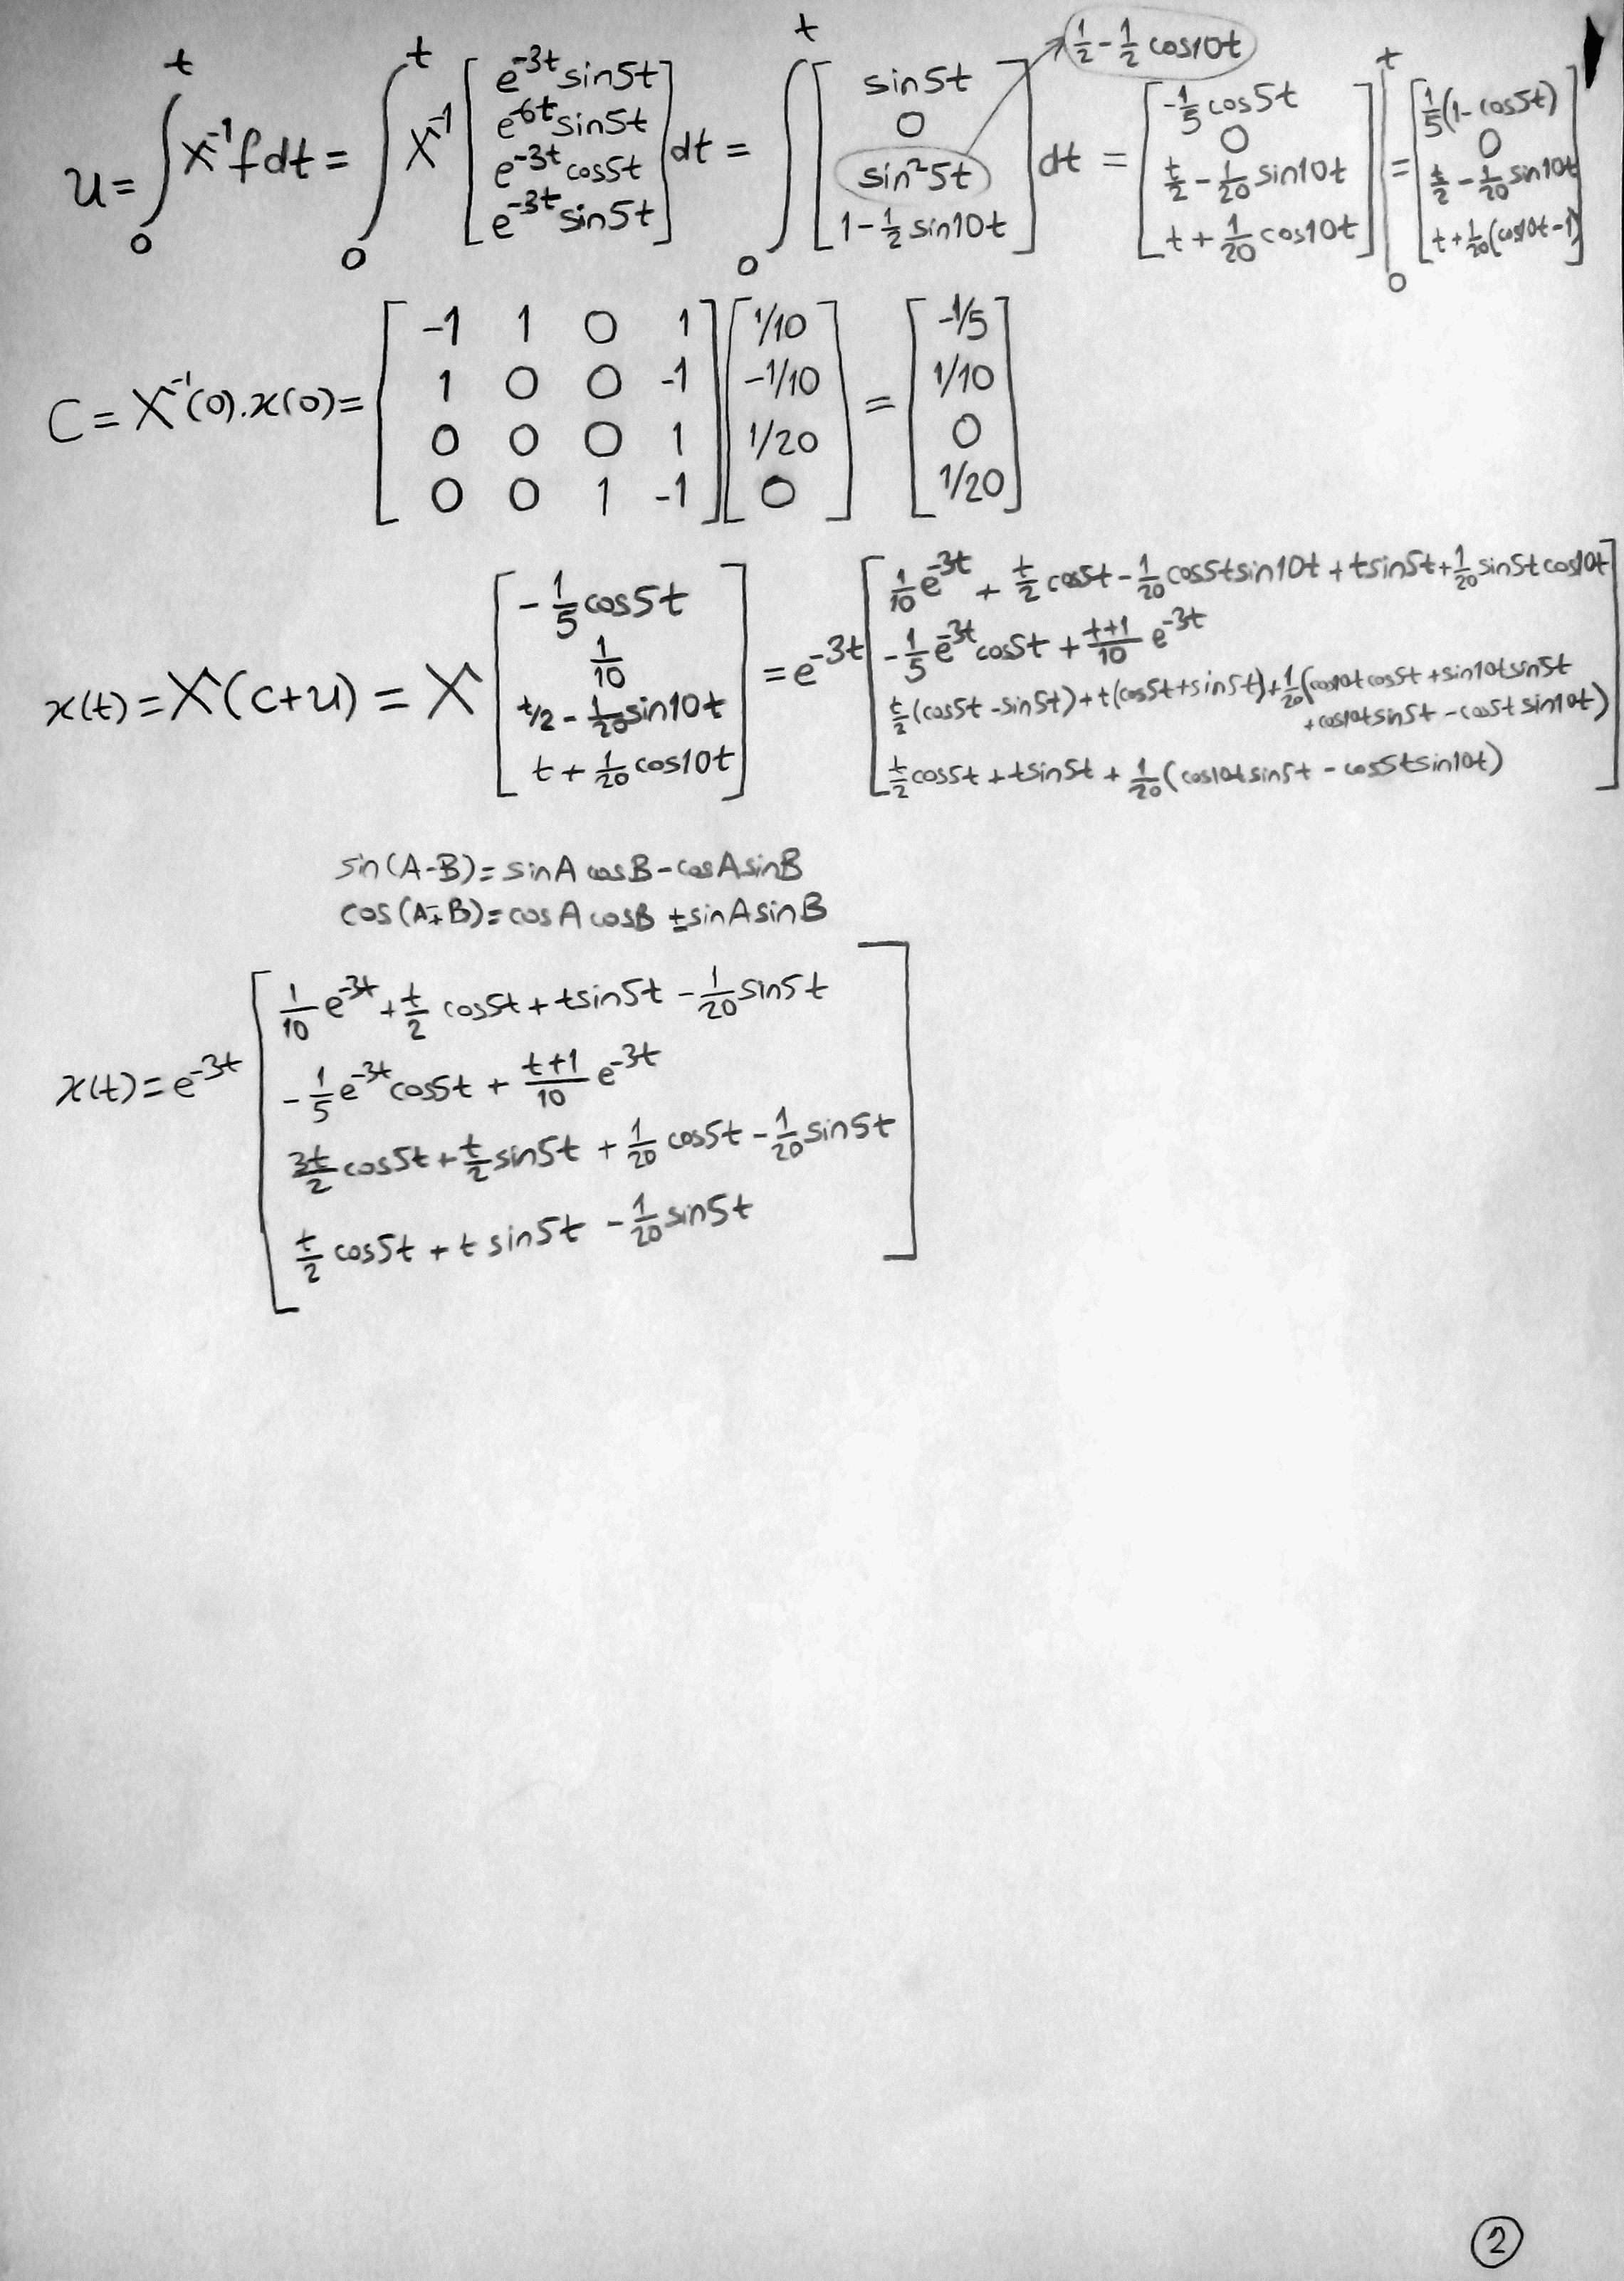 u = ∫₀ᵗ X⁻¹ f dt = ∫₀ᵗ X⁻¹ [ e^{-3t} sin5t ; e^{-6t} sin5t ; e^{-3t} cos5t ; e^{-3t} sin5t ] dt = ∫₀ᵗ [ sin5t ; 0 ; sin²5t → 1/2 - 1/2 cos10t ; 1 - 1/2 sin10t ] dt = [ -1/5 cos5t ; 0 ; t/2 - 1/20 sin10t ; t + 1/20 cos10t ] |₀ᵗ = [ 1/5(1 - cos5t) ; 0 ; t/2 - 1/20 sin10t ; t + 1/20(cos10t - 1) ]
C = X⁻¹(0).x(0) = [ -1 1 0 1 ; 1 0 0 -1 ; 0 0 0 1 ; 0 0 1 -1 ] [ 1/10 ; -1/10 ; 1/20 ; 0 ] = [ -1/5 ; 1/10 ; 0 ; 1/20 ]
x(t) = X(c+u) = X [ -1/5 cos5t ; 1/10 ; t/2 - 1/20 sin10t ; t + 1/20 cos10t ] = e^{-3t} [ 1/10 e^{-3t} + t/2 cos5t - 1/20 cos5t sin10t + t sin5t + 1/20 sin5t cos10t ; -1/5 e^{-3t} cos5t + (t+1)/10 e^{-3t} ; t/2 (cos5t - sin5t) + t(cos5t + sin5t) + 1/20 (cos10t cos5t + sin10t sin5t + cos10t sin5t - cos5t sin10t) ; t/2 cos5t + t sin5t + 1/20 (cos10t sin5t - cos5t sin10t) ]
sin(A-B) = sinA cosB - cosA sinB
cos(A∓B) = cosA cosB ± sinA sinB
x(t) = e^{-3t} [ 1/10 e^{-3t} + t/2 cos5t + t sin5t - 1/20 sin5t ; -1/5 e^{-3t} cos5t + (t+1)/10 e^{-3t} ; 3t/2 cos5t + t/2 sin5t + 1/20 cos5t - 1/20 sin5t ; t/2 cos5t + t sin5t - 1/20 sin5t ]
2